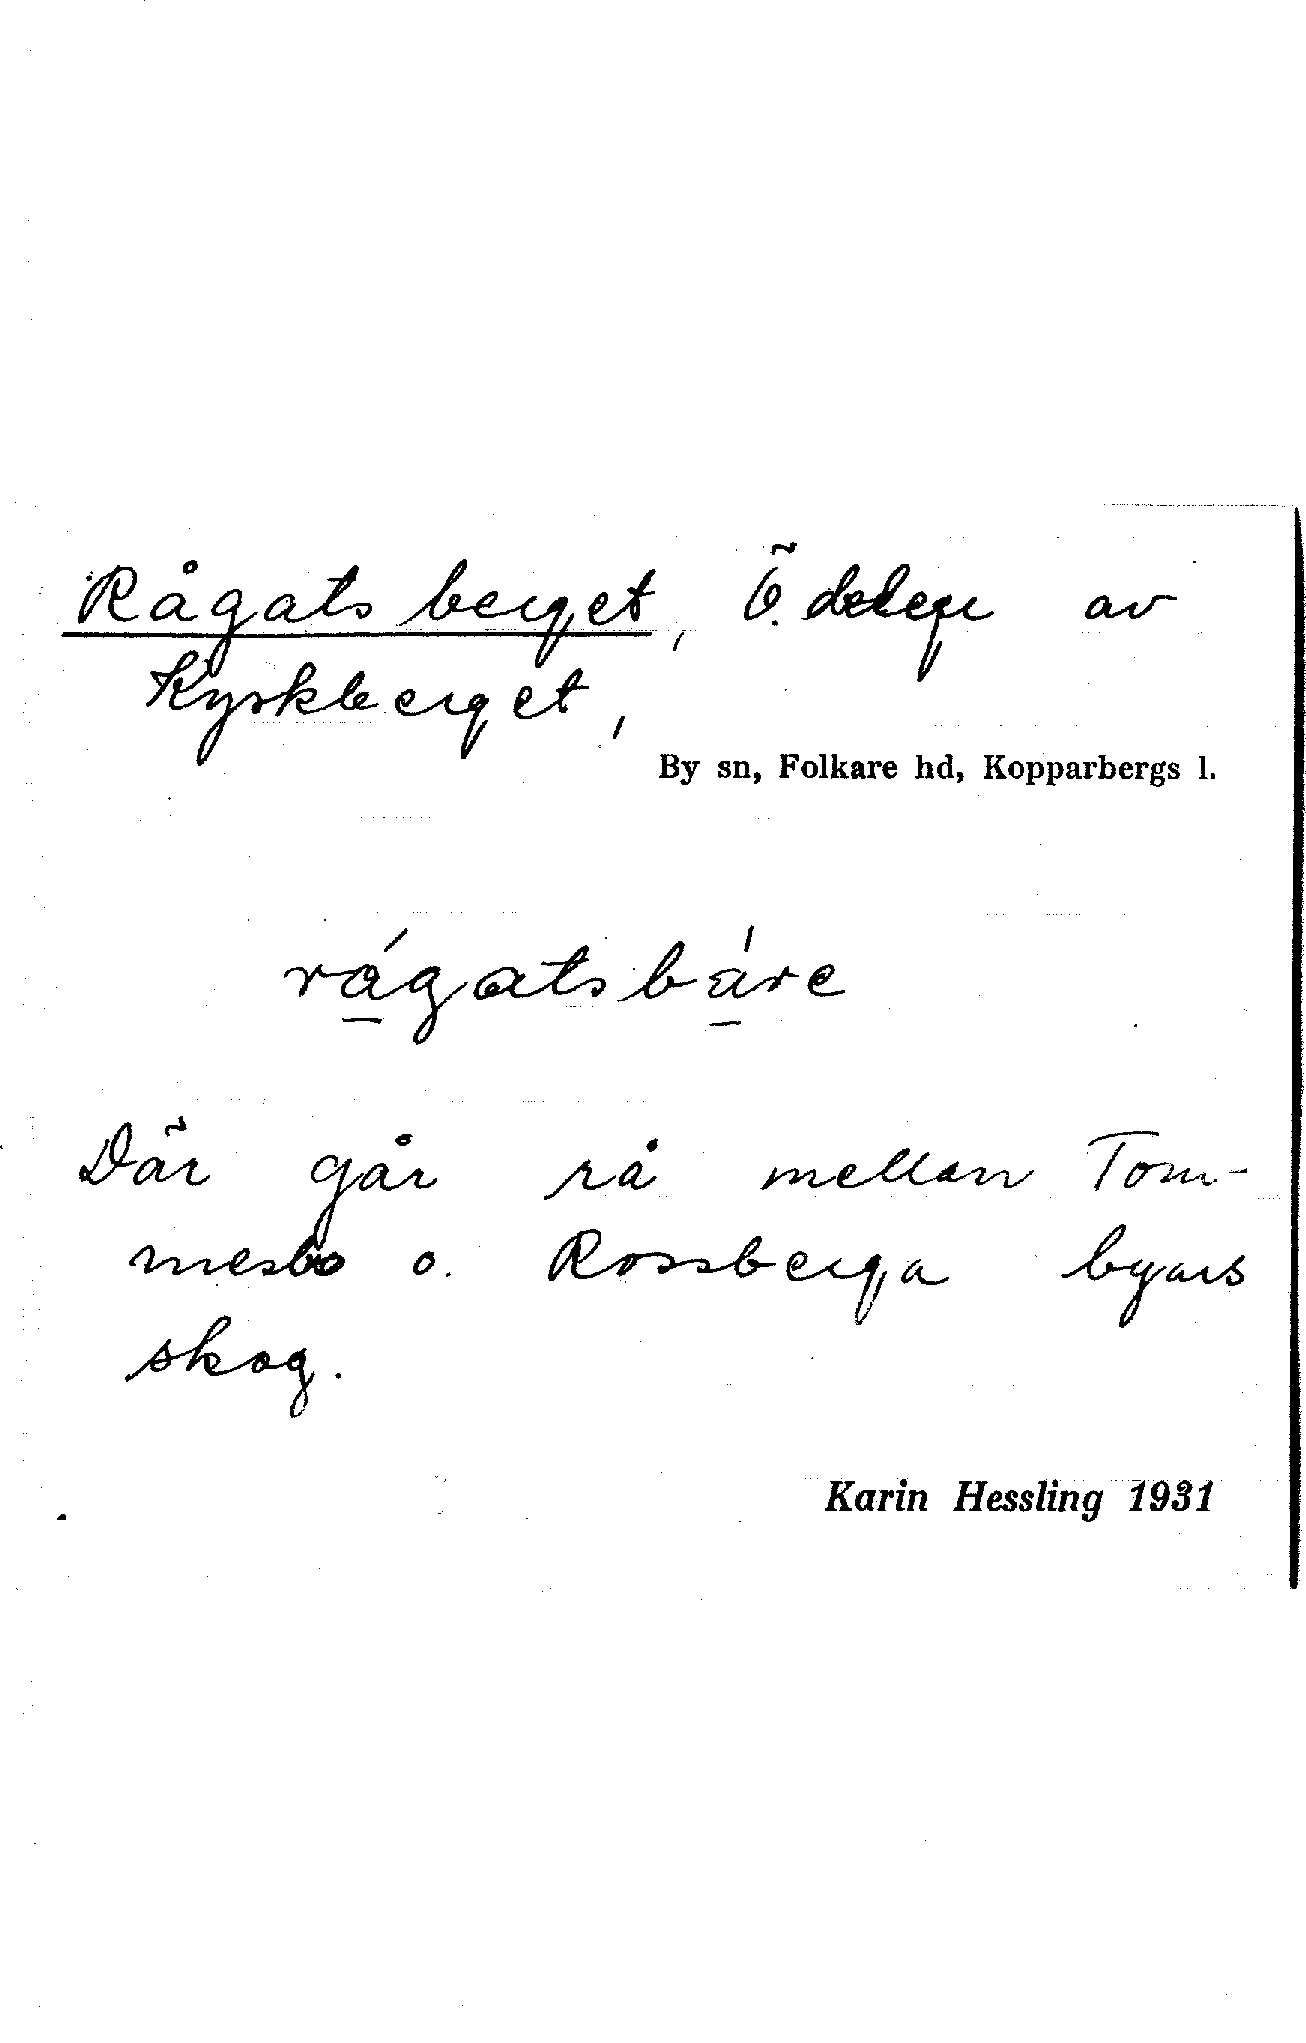 Rågatsberget, Ö. delen av
Kyskberget,
By sn, Folkare hd, Kopparbergs l.
rágatsbáre
Där går rå mellan Tom-
mesbo o. Rossberga byars
skog.
Karin Hessling 1931